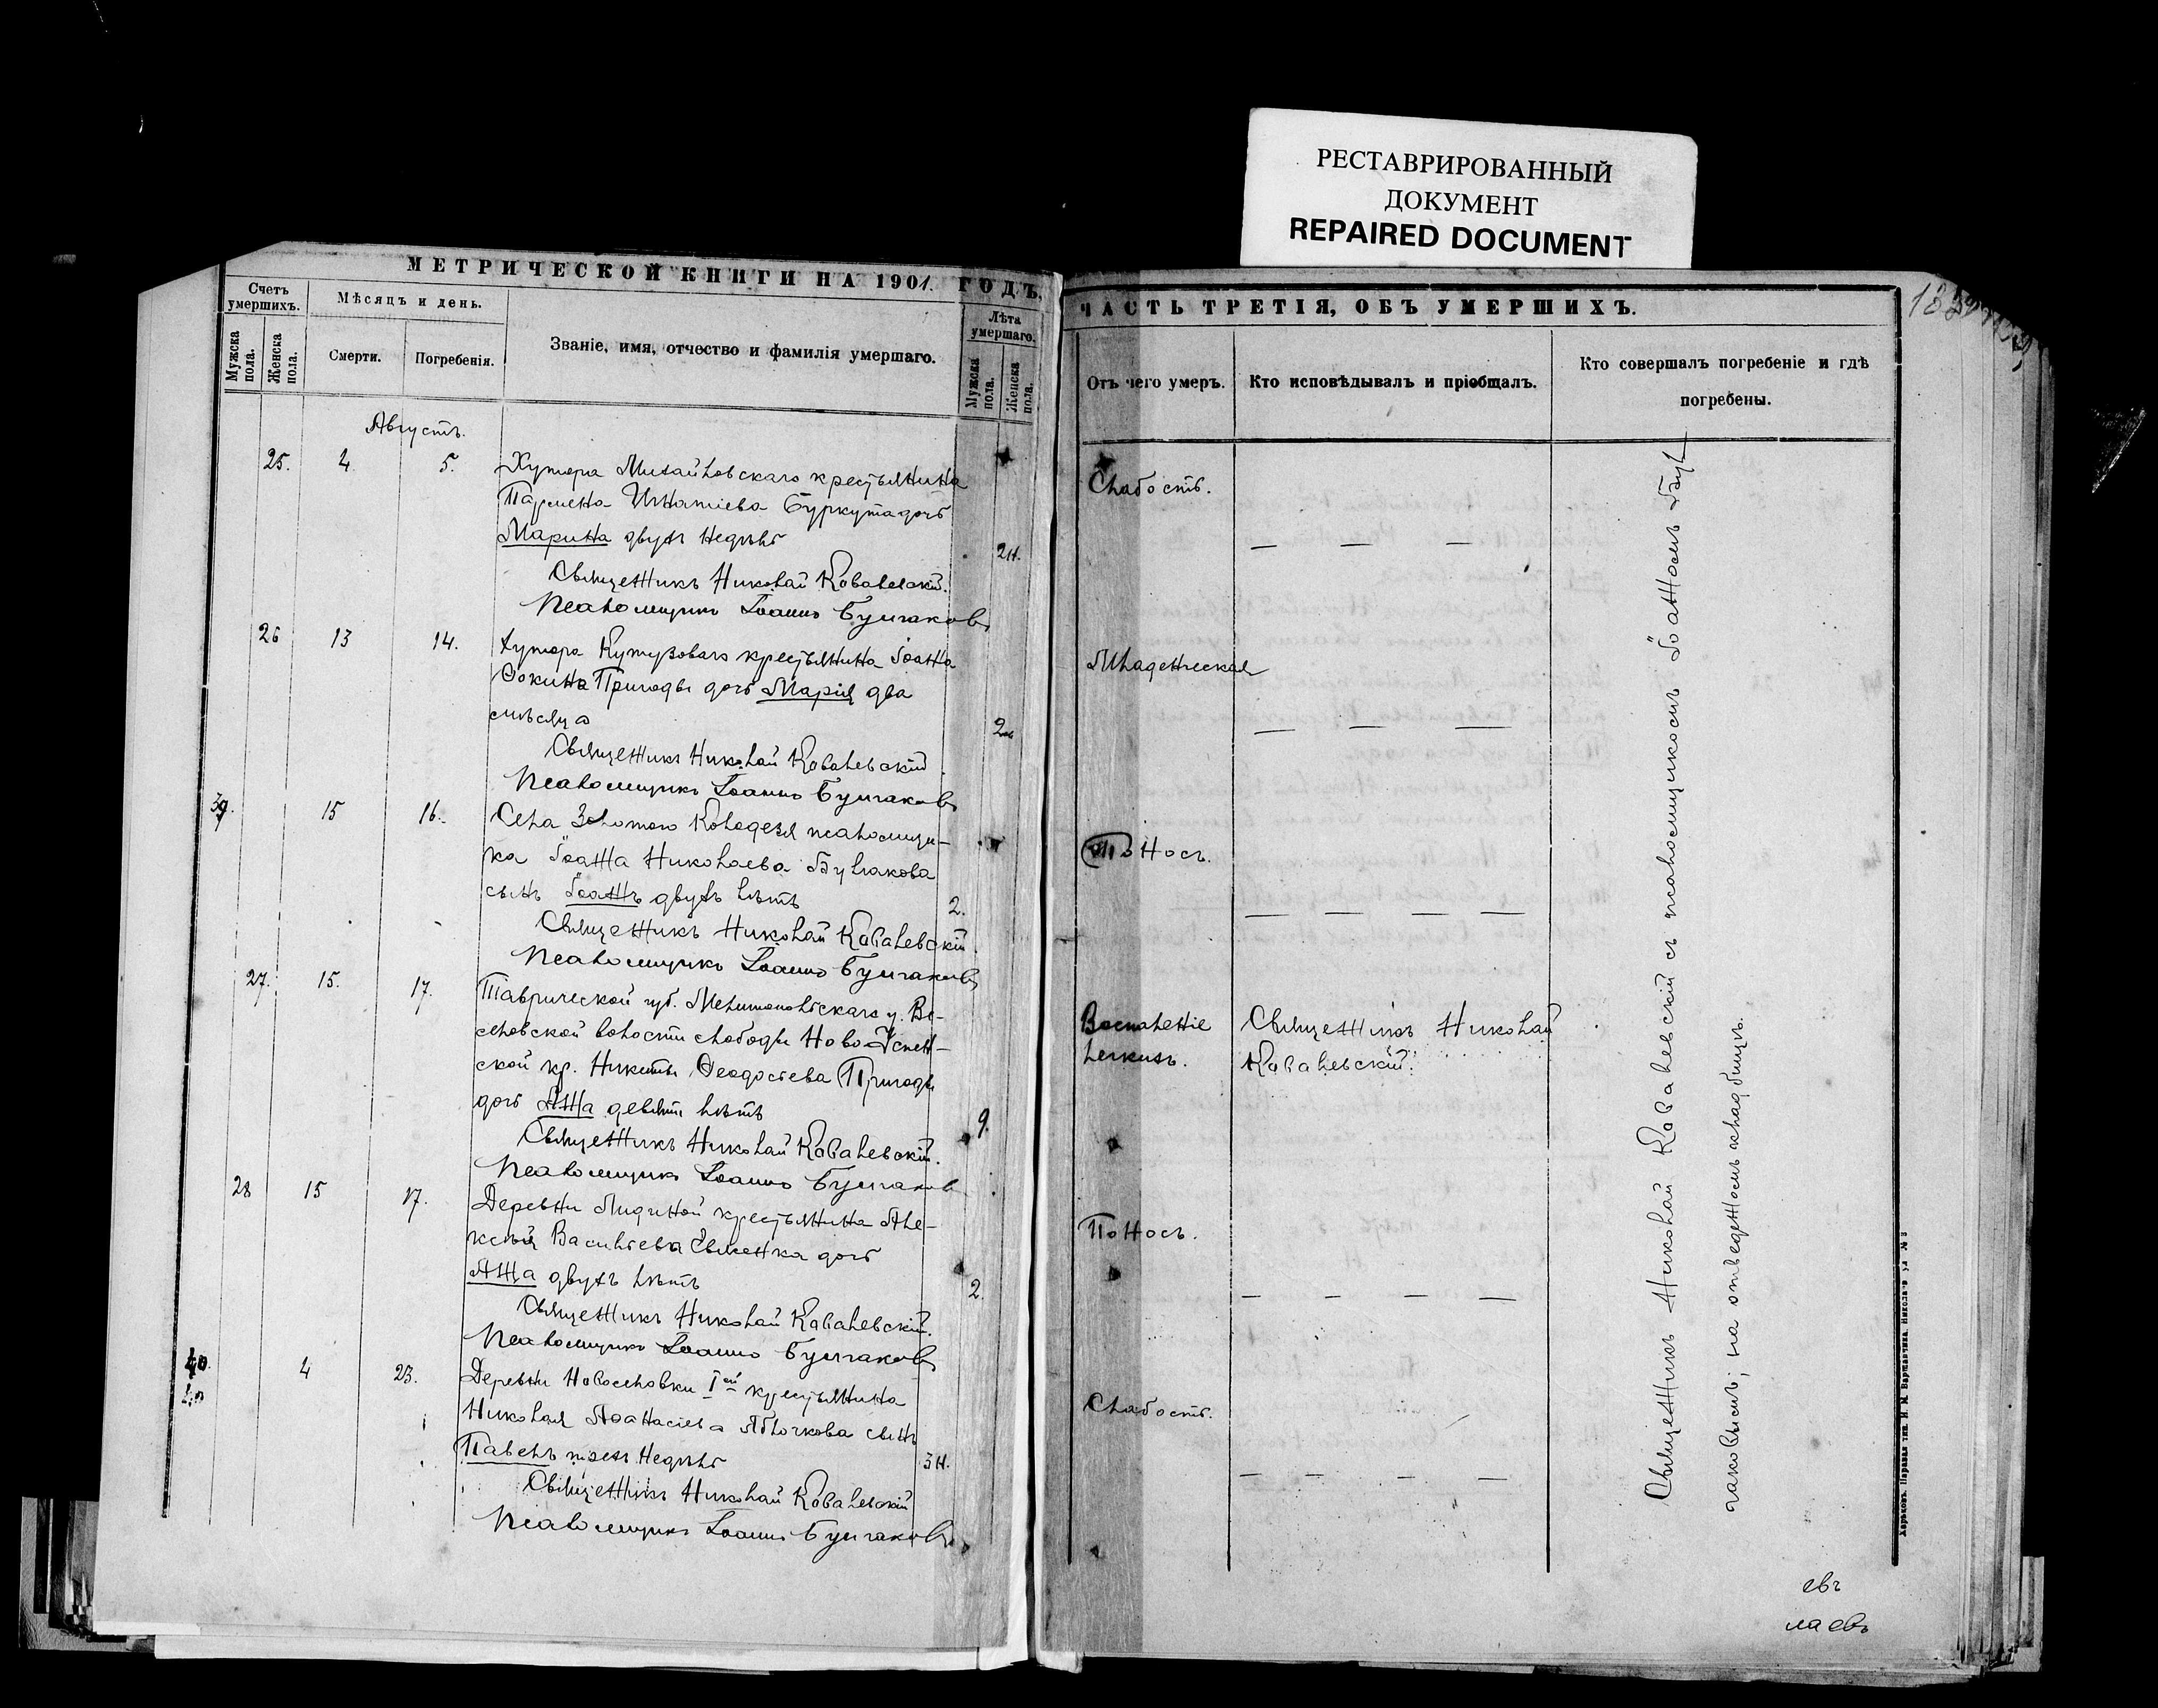 РЕСТАВРИРОВАННЫЙ
ДОКУМЕНТ
REPAIRED DOCUMENT
МЕТРИЧЕСКОЙ КНИГИ НА 1901. ГОДЪ,
Счетъ умершихъ.
Мужска пола.
Женска пола.
Мѣсяцъ и день.
Смерти.
Погребенія.
Званіе, имя, отчество и фамилія умершаго.
Лѣта умершаго.
Мужска пола.
Женска пола.
Августъ.
25. 4 5. Хутора Михайловскаго крестьянина
Пармена Игнатіева Буркута дочь
Марина двухъ недѣль
2н.
Священникъ Николай Ковалевскій.
Псаломщикъ Іоаннъ Булгаковъ
26 13 14. Хутора Кутузоваго крестьянина Іоанна
Ѳокина Пригоды дочь Марія два
мѣсяца
2м
Священникъ Николай Ковалевскій
Псаломщикъ Іоаннъ Булгаковъ
39. 15 16. Села Золотого Колодезя псаломщи-
ка Іоанна Николаева Булгакова
сынъ Іоаннъ двухъ лѣтъ
2.
Священникъ Николай Ковалевскій.
Псаломщикъ Іоаннъ Булгаковъ
27. 15. 17. Таврической губ. Мелитопольскаго у. Ве-
селовской волости слободы Ново-Успен-
ской кр. Никиты Ѳеодосіева Пригоды
дочь Анна девяти лѣтъ
9.
Священникъ Николай Ковалевскій.
Псаломщикъ Іоаннъ Булгаковъ
28 15 17. Деревни Лидиной крестьянина Але-
ксѣя Васильева дочь
Анна двухъ лѣтъ
2.
Священникъ Николай Ковалевскій.
Псаломщикъ Іоаннъ Булгаковъ
40. 4 23. Деревни Новоселовки Iой крестьянина
40
Николая Аѳанасіева Яблочкова сынъ
Павелъ трехъ недѣль
3н.
Священникъ Николай Ковалевскій
Псаломщикъ Іоаннъ Булгаковъ
ЧАСТЬ ТРЕТІЯ, ОБЪ УМЕРШИХЪ.
Отъ чего умеръ.
Кто исповѣдывалъ и пріобщалъ.
Кто совершалъ погребеніе и гдѣ
погребены.
Слабость.
— — —
Младенческая
— — —
Поносъ.
— — — —
Воспаленіе Священникъ Николай
легкихъ. Ковалевскій.
Поносъ.
— — — —
Слабость.
— — — —
Священникъ Николай Ковалевскій съ псаломщикомъ Іоанномъ Бул-
гаковымъ; на отведенномъ кладбищѣ.
Харьковъ. Паровая тип. И. М. Варшавчика. Николаев. ул. № 3
евъ
лаевъ